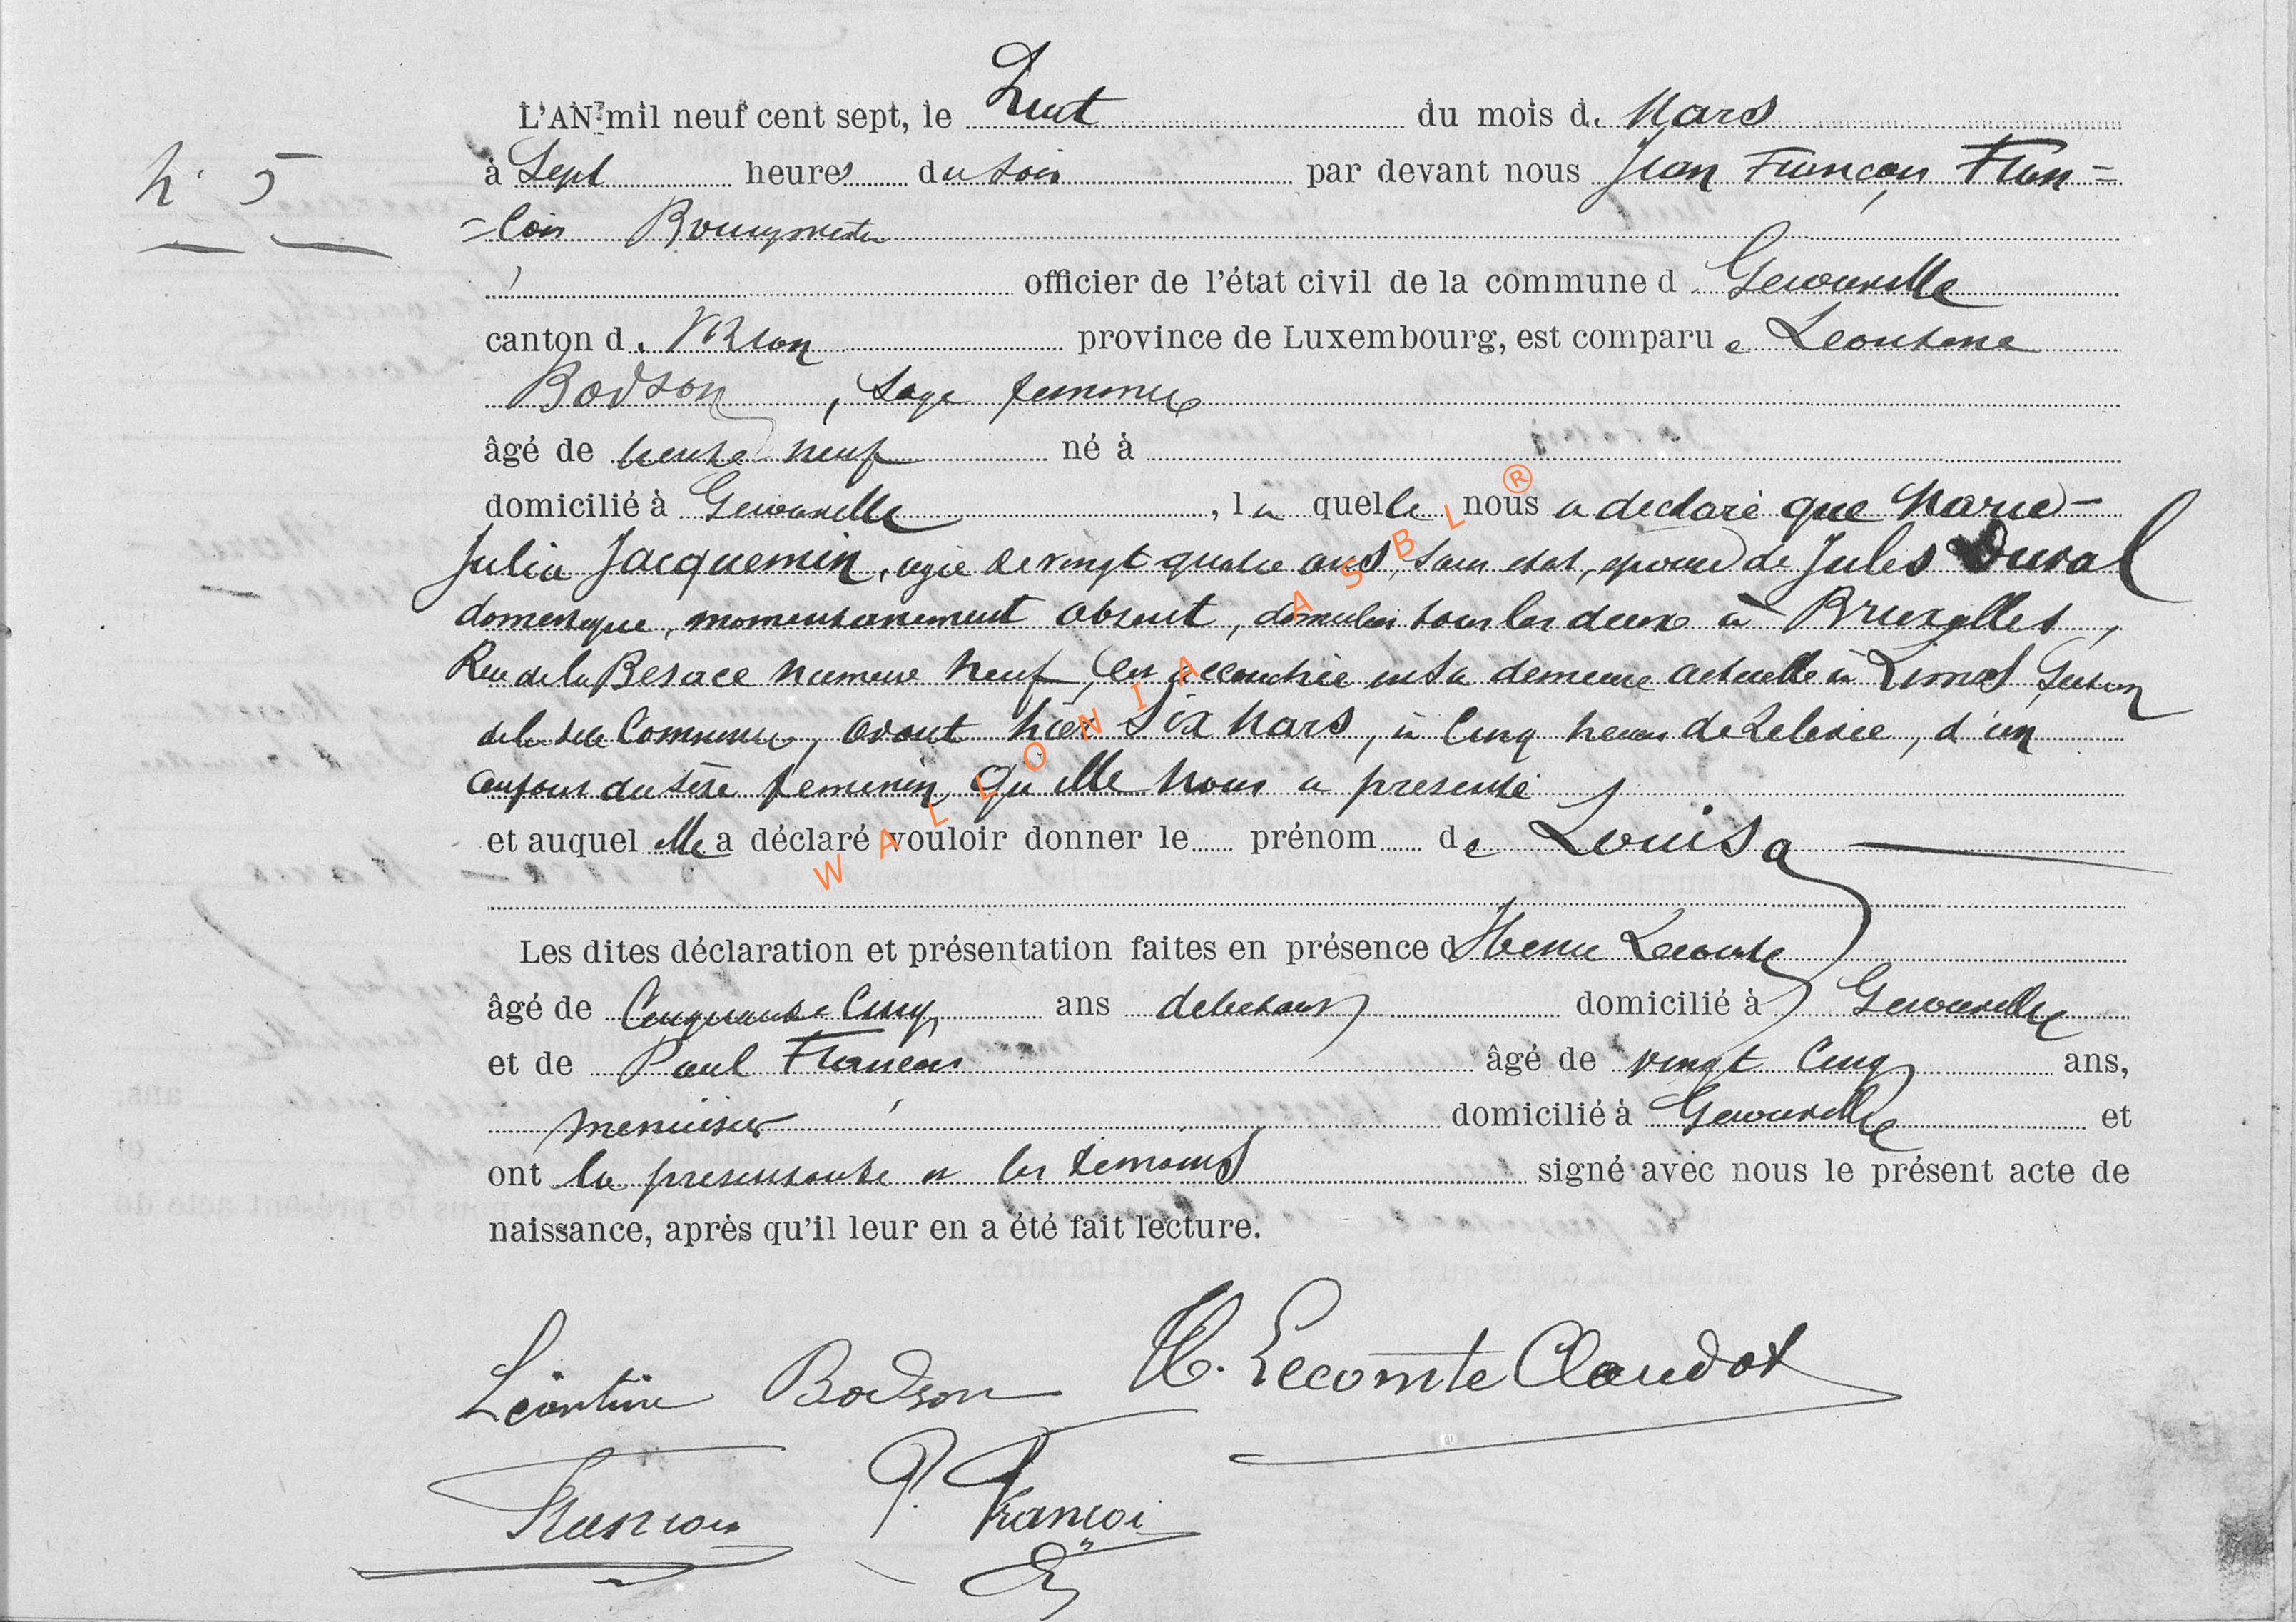 N° 5
L'AN mil neuf cent sept, le huit du mois de Mars
à Sept heures du soir par devant nous Jean François Fran=
=çois Bourgmestre
officier de l'état civil de la commune de Gerouville
canton de Virton province de Luxembourg, est comparue Leontine
Bodson, sage femme
âgé de trente neuf né à
domicilié à Gerouville, la quelle nous a declaré que Marie-
Julia Jacquemin, agée de vingt quatre ans, sans etat, epouse de Jules Duval
domestique, momentanement absent, domiciliés tous les deux à Bruxelles,
Rue de la Besace numero neuf, est accouchée en sa demeure actuelle à Limes, Section
de la dite Commune, avant hier six Mars, à Cinq heures de relevée, d'un
enfant du sexe feminin qu'elle nous a presenté
et auquel elle a déclaré vouloir donner le prénom de Louisa
Les dites déclaration et présentation faites en présence d Henri Lecomte
âgé de Cinquante Cinq ans debitant domicilié à Gerouville
et de Paul François âgé de vingt Cinq ans,
menuisier domicilié à Gerouville et
ont la presentante et les temoins signé avec nous le présent acte de
naissance, après qu'il leur en a été fait lecture.
Léontine Bodson H. Lecomte Claudot
François P. François
WALLONIA ASBL ®